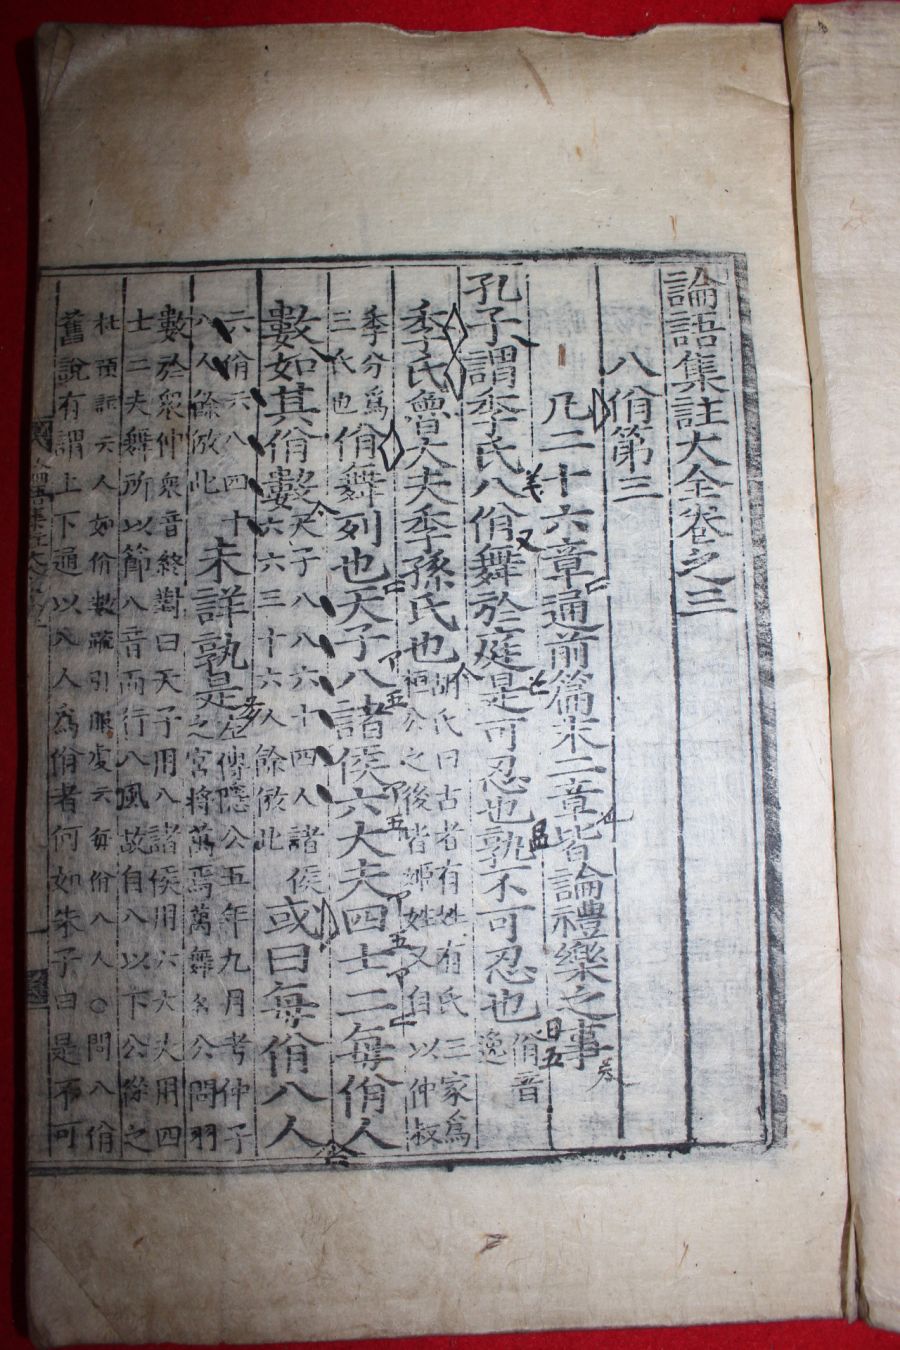 論語集註大全卷之三
八佾第三
凡二十六章通前篇末二章皆論禮樂之事
孔子謂季氏八佾舞於庭是可忍也孰不可忍也佾音逸
季氏魯大夫季孫氏也胡氏曰古者有姓有氏三家爲桓公之後皆姬姓又自以仲叔
季分爲三氏也佾舞列也天子八諸侯六大夫四士二每佾人
數如其佾數天子八八六十四人諸侯六六三十六人餘倣此或曰每佾八人
六佾六八四十八人餘倣此未詳孰是左傳隱公五年九月考仲子之宮將萬焉萬舞名公問羽
數於衆仲衆音終對曰天子用八諸侯用六大夫用四士二夫舞所以節八音而行八風故自八以下公從之
杜預註云人如佾數疏引服虔云每佾八人○問八佾舊說有謂上下通以八人爲佾者何如朱子曰是不可